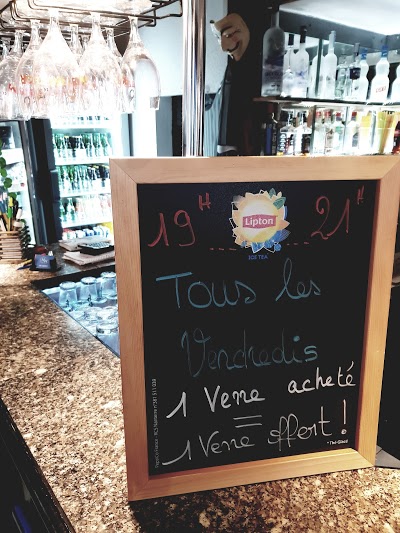 19H 21H
Lipton
ICE TEA
Tous les
Vendredis
1 Verre acheté
=
1 Verre offert !
* Thé Glacé